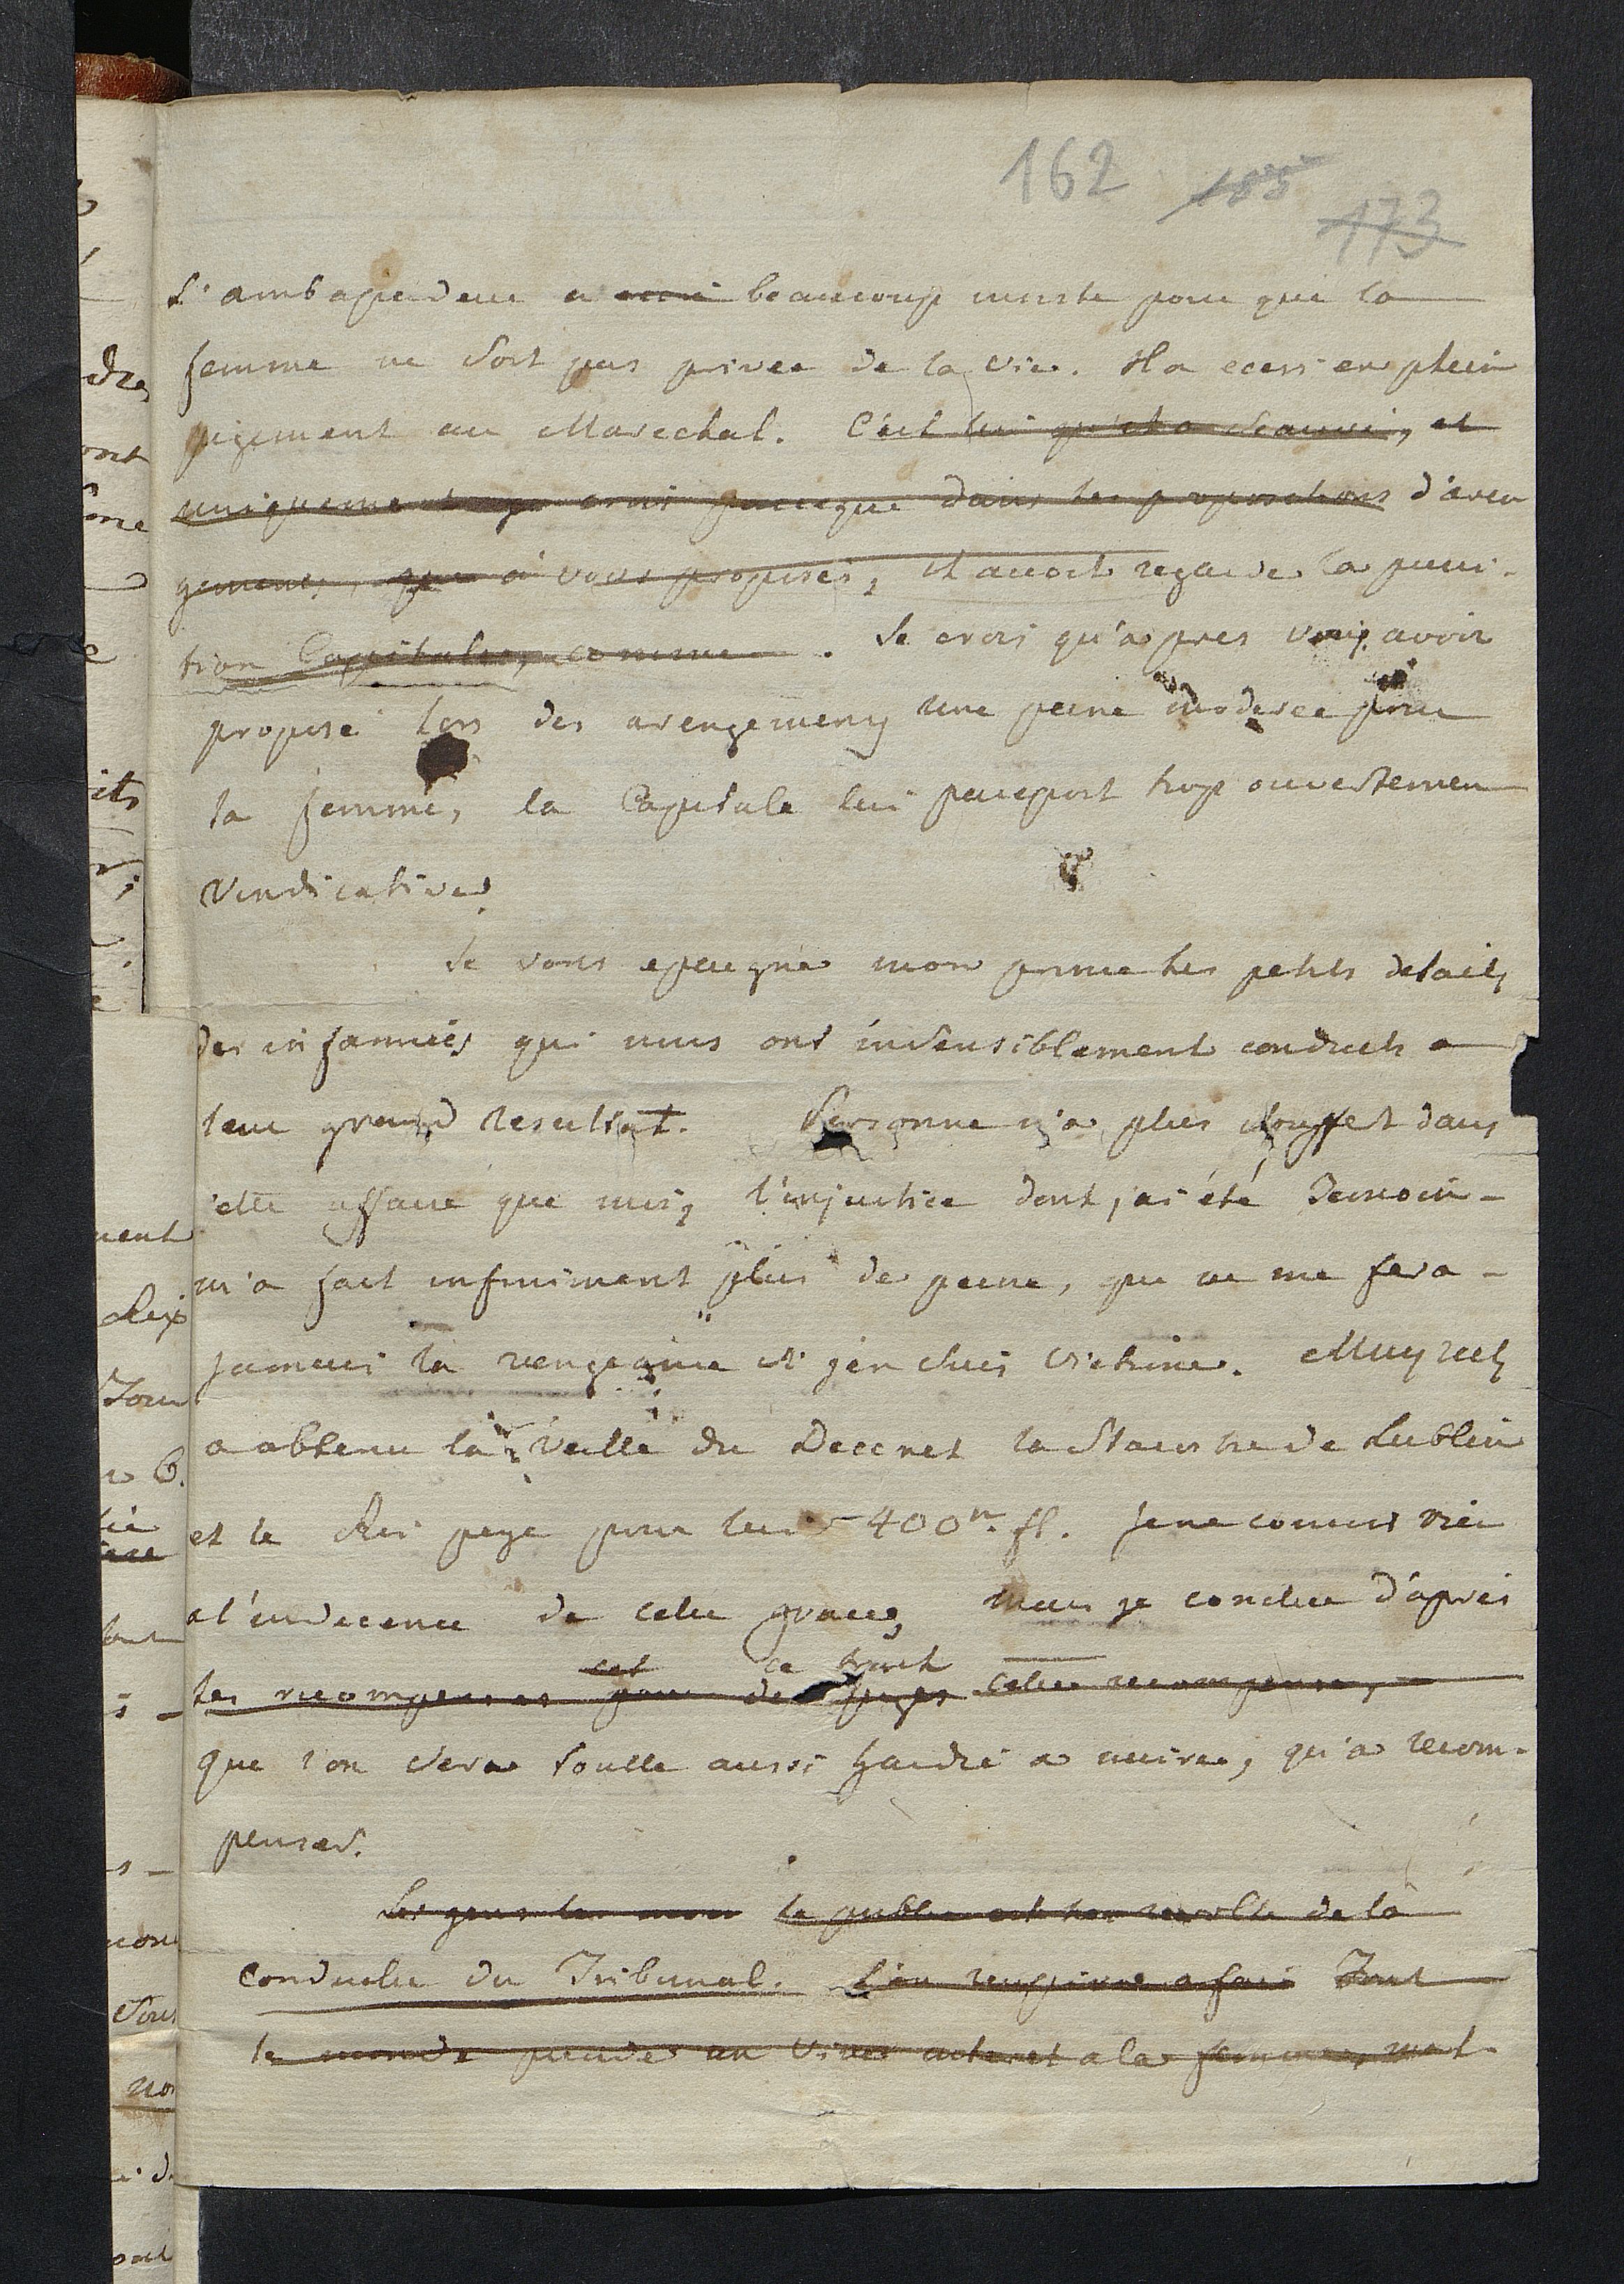 162 185 173
L'ambassadeur a beaucoup insiste pour que la
femme ne soit pas privee de la vie. Il a ecrit en plein
jugement au Marechal. C'est lui qui l'a sauvé, et
uniquement je crois parceque dans les propositions d'aren
gemens, que a vous proposés, il avoit regarde la puni-
tion Capitale, comme . Je crois qu'apres vous avoir
proposé lors des arengemens une peine moderee pour
la femme, la Capitale lui paroisoit trop ouvertemen
vindicative.
Je vous epargne mon prince les petits details
des infamies qui nous ont insensiblement conduits a
leur grand resultat. Personne n'a plus souffert dans
cette affaire que moi, l'injustice dont j'ai été temoin -
m'a fait infiniment plus de peine, que ne me fera -
jamais la vengeance si j'en suis victime.
a obtenu la veille du Decret la Starostie de Lublin
et le Roi paye pour lui 400 m. fl. je ne connois rien
a l'indecence de cette grace, mais je conclue d'après
cet ce trait
les recompenses pour de juges cette recompense, -
que l'on sera toute aussi hardie a nuire, qu'a recom-
penser.
Les gens le public est tres revolté de la
conduite du Tribunal. Tout
le monde prende un vive interet a la femme, met